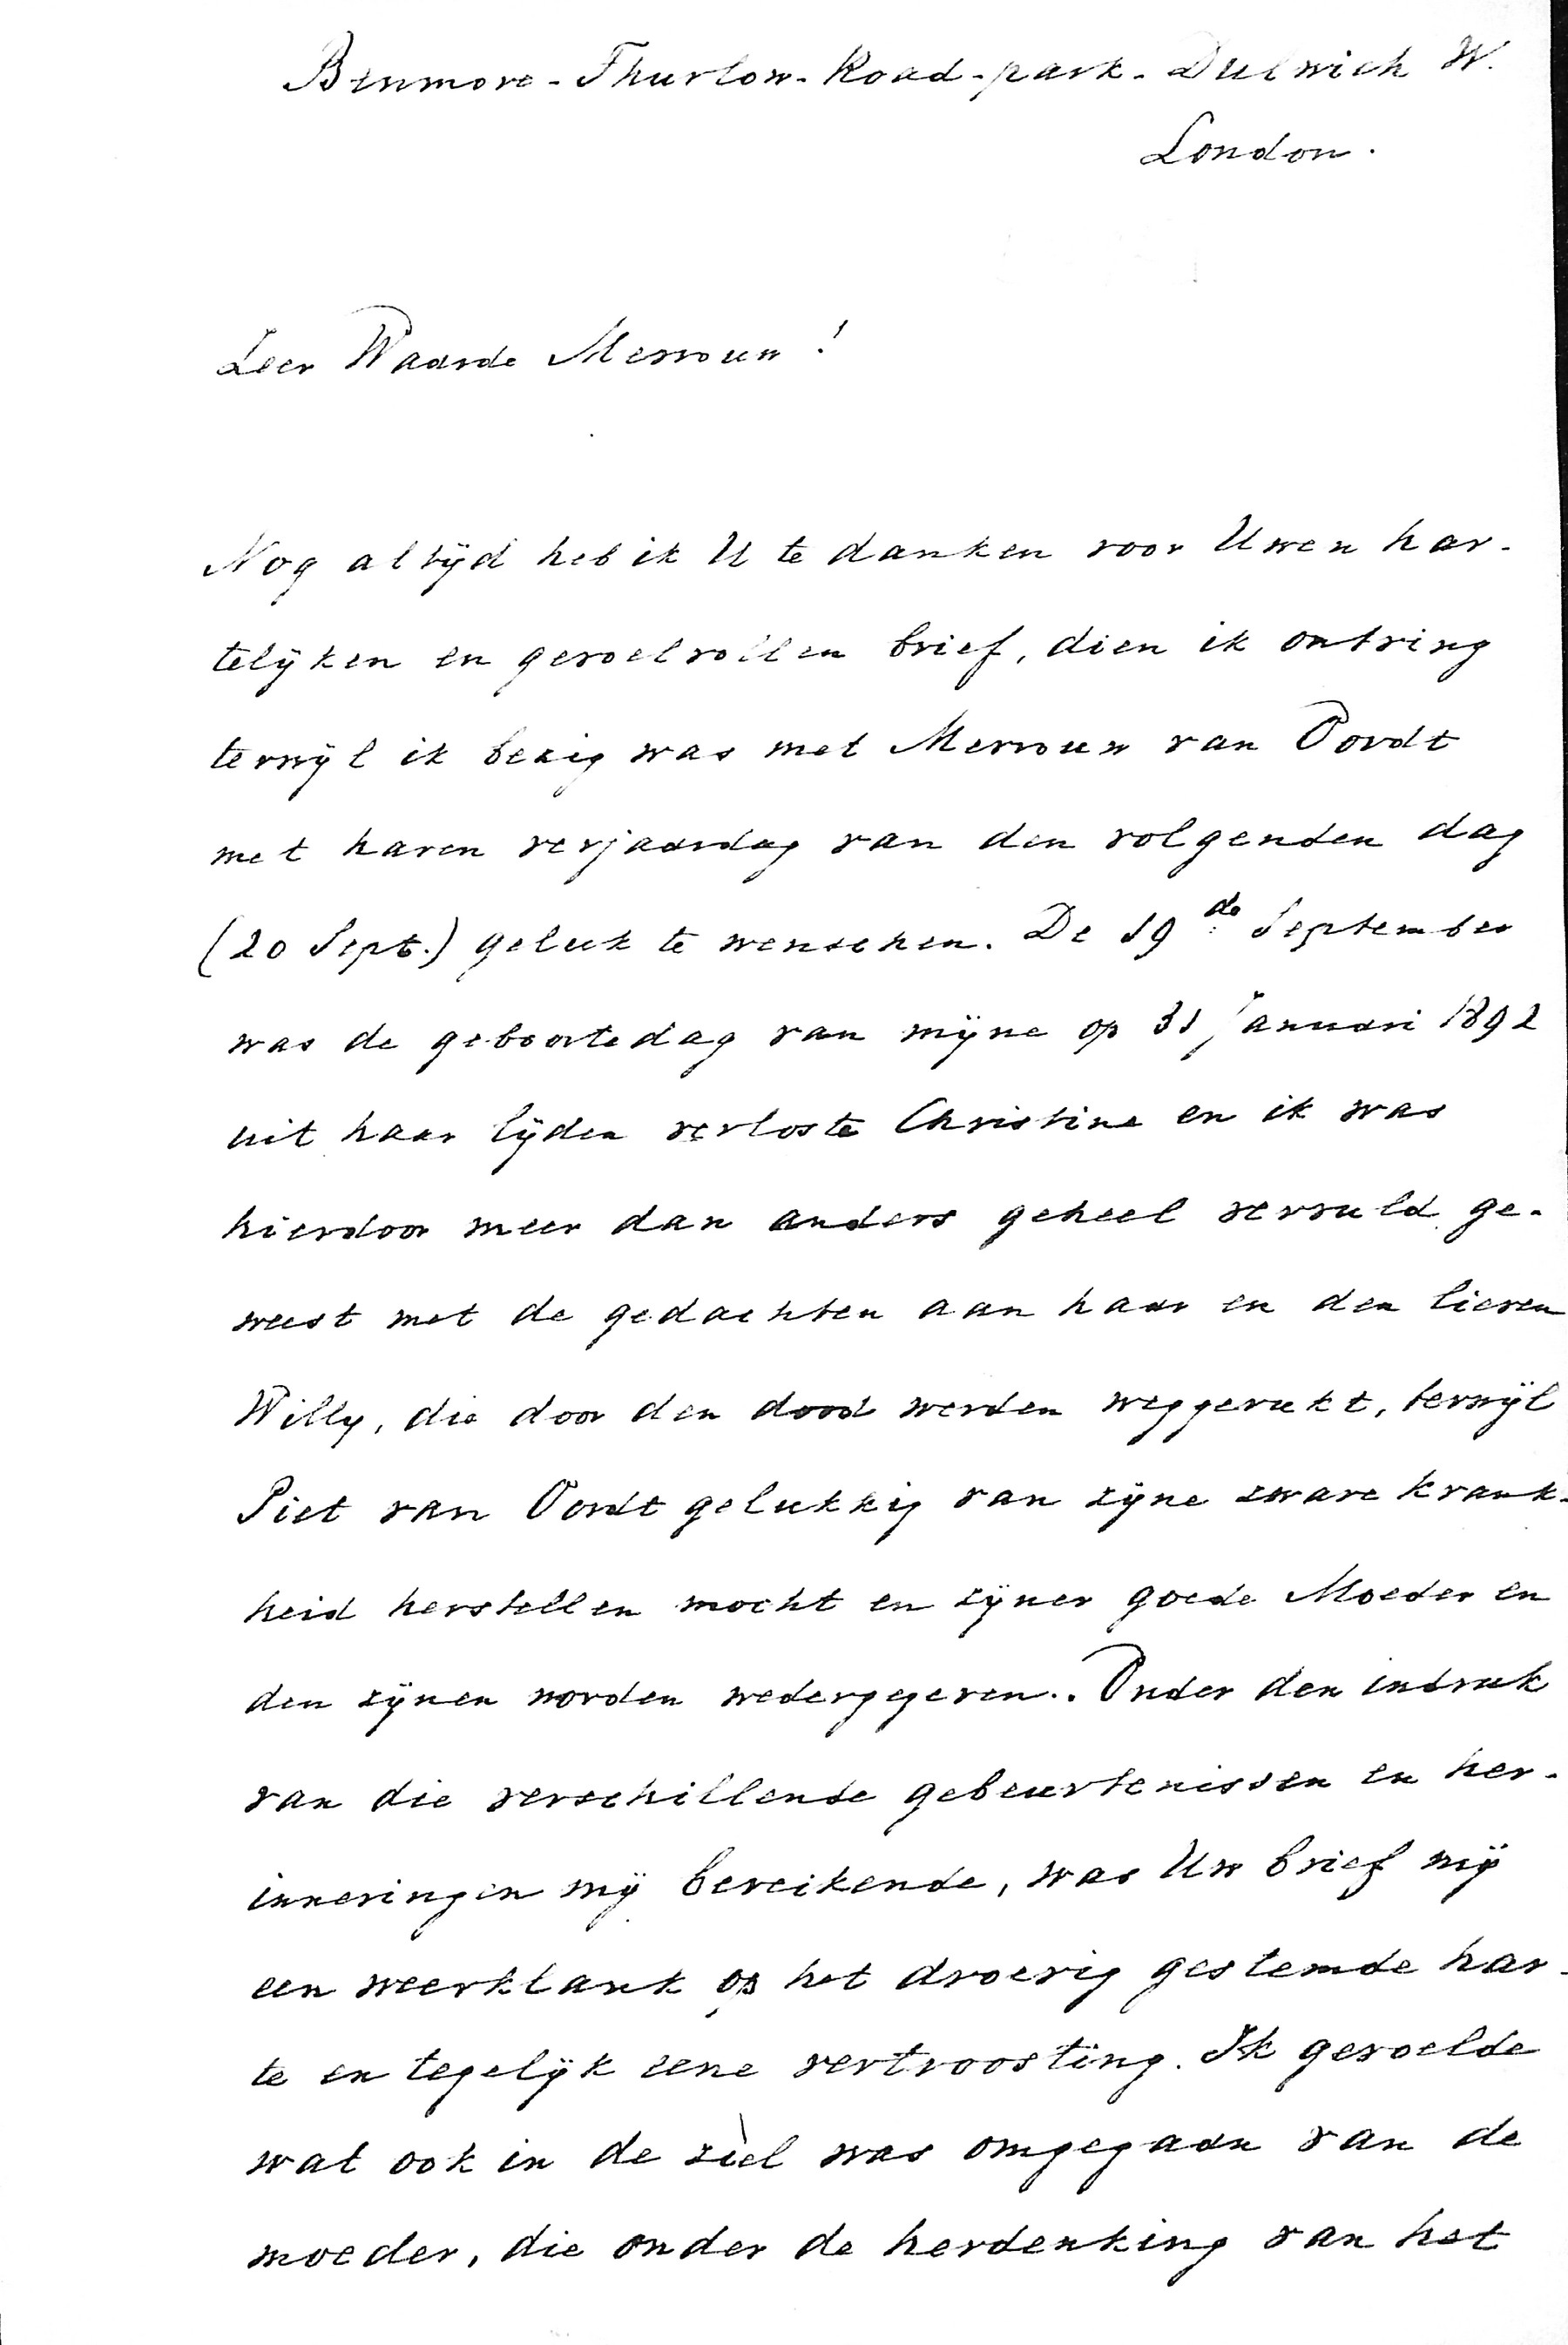 Benmore - Thurlow - Road - park - Dulwich W.
London.
Zeer Waarde Mevrouw!
Nog altijd heb ik U te danken voor Uwen har-
telijken en gevoelvollen brief, dien ik ontving
terwijl ik bezig was met Mevrouw van Oordt
met haren verjaardag van den volgenden dag
(20 Sept.) geluk te wenschen. De 19de September
was de geboortedag van mijne op 31 Januari 1892
uit haar lijden verloste Christine en ik was
hierdoor meer dan anders geheel vervuld ge-
weest met de gedachten aan haar en den lieven
Willy, die door den dood werden weggerukt, terwijl
Piet van Oordt gelukkig van zijne zware krank-
heid herstellen mocht en zijner goede Moeder en
den zijnen worden wedergegeven.. Onder den indruk
van die verschillende gebeurtenissen en her-
inneringen mij bereikende, was Uw brief mij
een weerklank op het droevig gestemde har-
te en tegelijk eene vertroosting. Ik gevoelde
wat ook in de ziel was omgegaan van de
moeder, die onder de herdenking van het